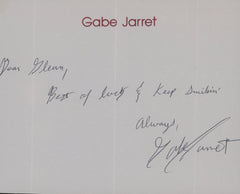 Gabe Jarret
Dear Glenn,
Best of luck & Keep Smilin'
Always,
Gabe Jarret